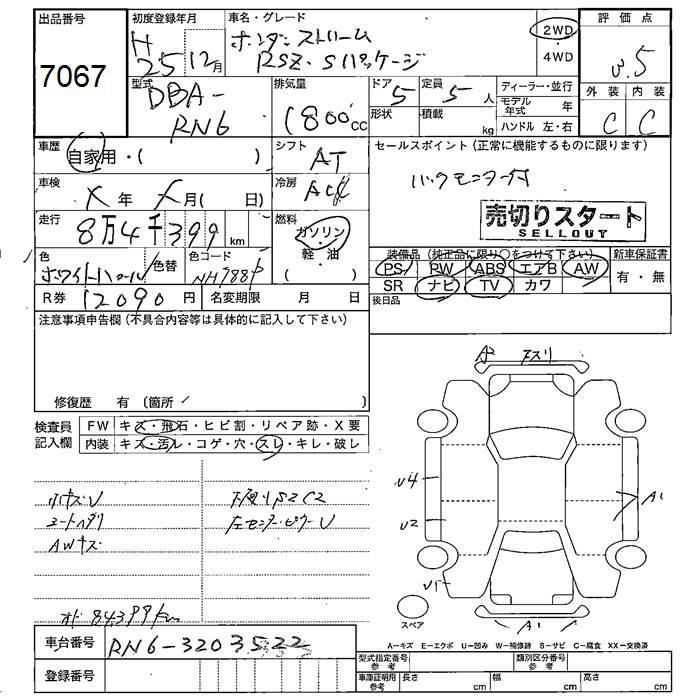 出品番号
7067
初度登録年月
H 25 12月
車名・グレード
ホンダ ストリーム
RSZ・Sパッケージ
2WD
・
4WD
評価点
外装 内装
C C
型式
DBA-
RN6
排気量
1800cc
ドア 5
定員 5人
形状
積載 kg
ディーラー・並行
モデル年式 年
ハンドル 左・右
車歴
自家用・( )
シフト
AT
セールスポイント(正常に機能するものに限ります)
バックモニター付
車検
X年 X月( 日)
冷房
売切りスタート
SELLOUT
走行
8万4千399km
燃料
ガソリン
・
軽・油
色
ホワイトパール
色替
色コード
NH788P
装備品(純正品に限り○をつけて下さい)
PS PW ABS エアB AW
SR ナビ TV カワ
新車保証書
有・無
R券 12090円
名変期限 月 日
後日品
注意事項申告欄(不具合内容等は具体的に記入して下さい)
修復歴 有 (箇所
検査員
記入欄
FW キズ・飛石・ヒビ割・リペア跡・X要
内装 キズ・汚レ・コゲ・穴・スレ・キレ・破レ
小キズU
下廻りS2C2
シートヘタリ
左センターピラーU
AWキズ
84399km
A2 下スリ
U4
U2
U1
A1
A1
スペア
A-キズ E-エクボ U-凹み W-補修跡 S-サビ C-腐食 XX-交換済
車台番号 RN6-3203522
登録番号
型式指定番号
参考
類別区分番号
参考
車庫証明用
参考
長さ cm
幅 cm
高さ cm